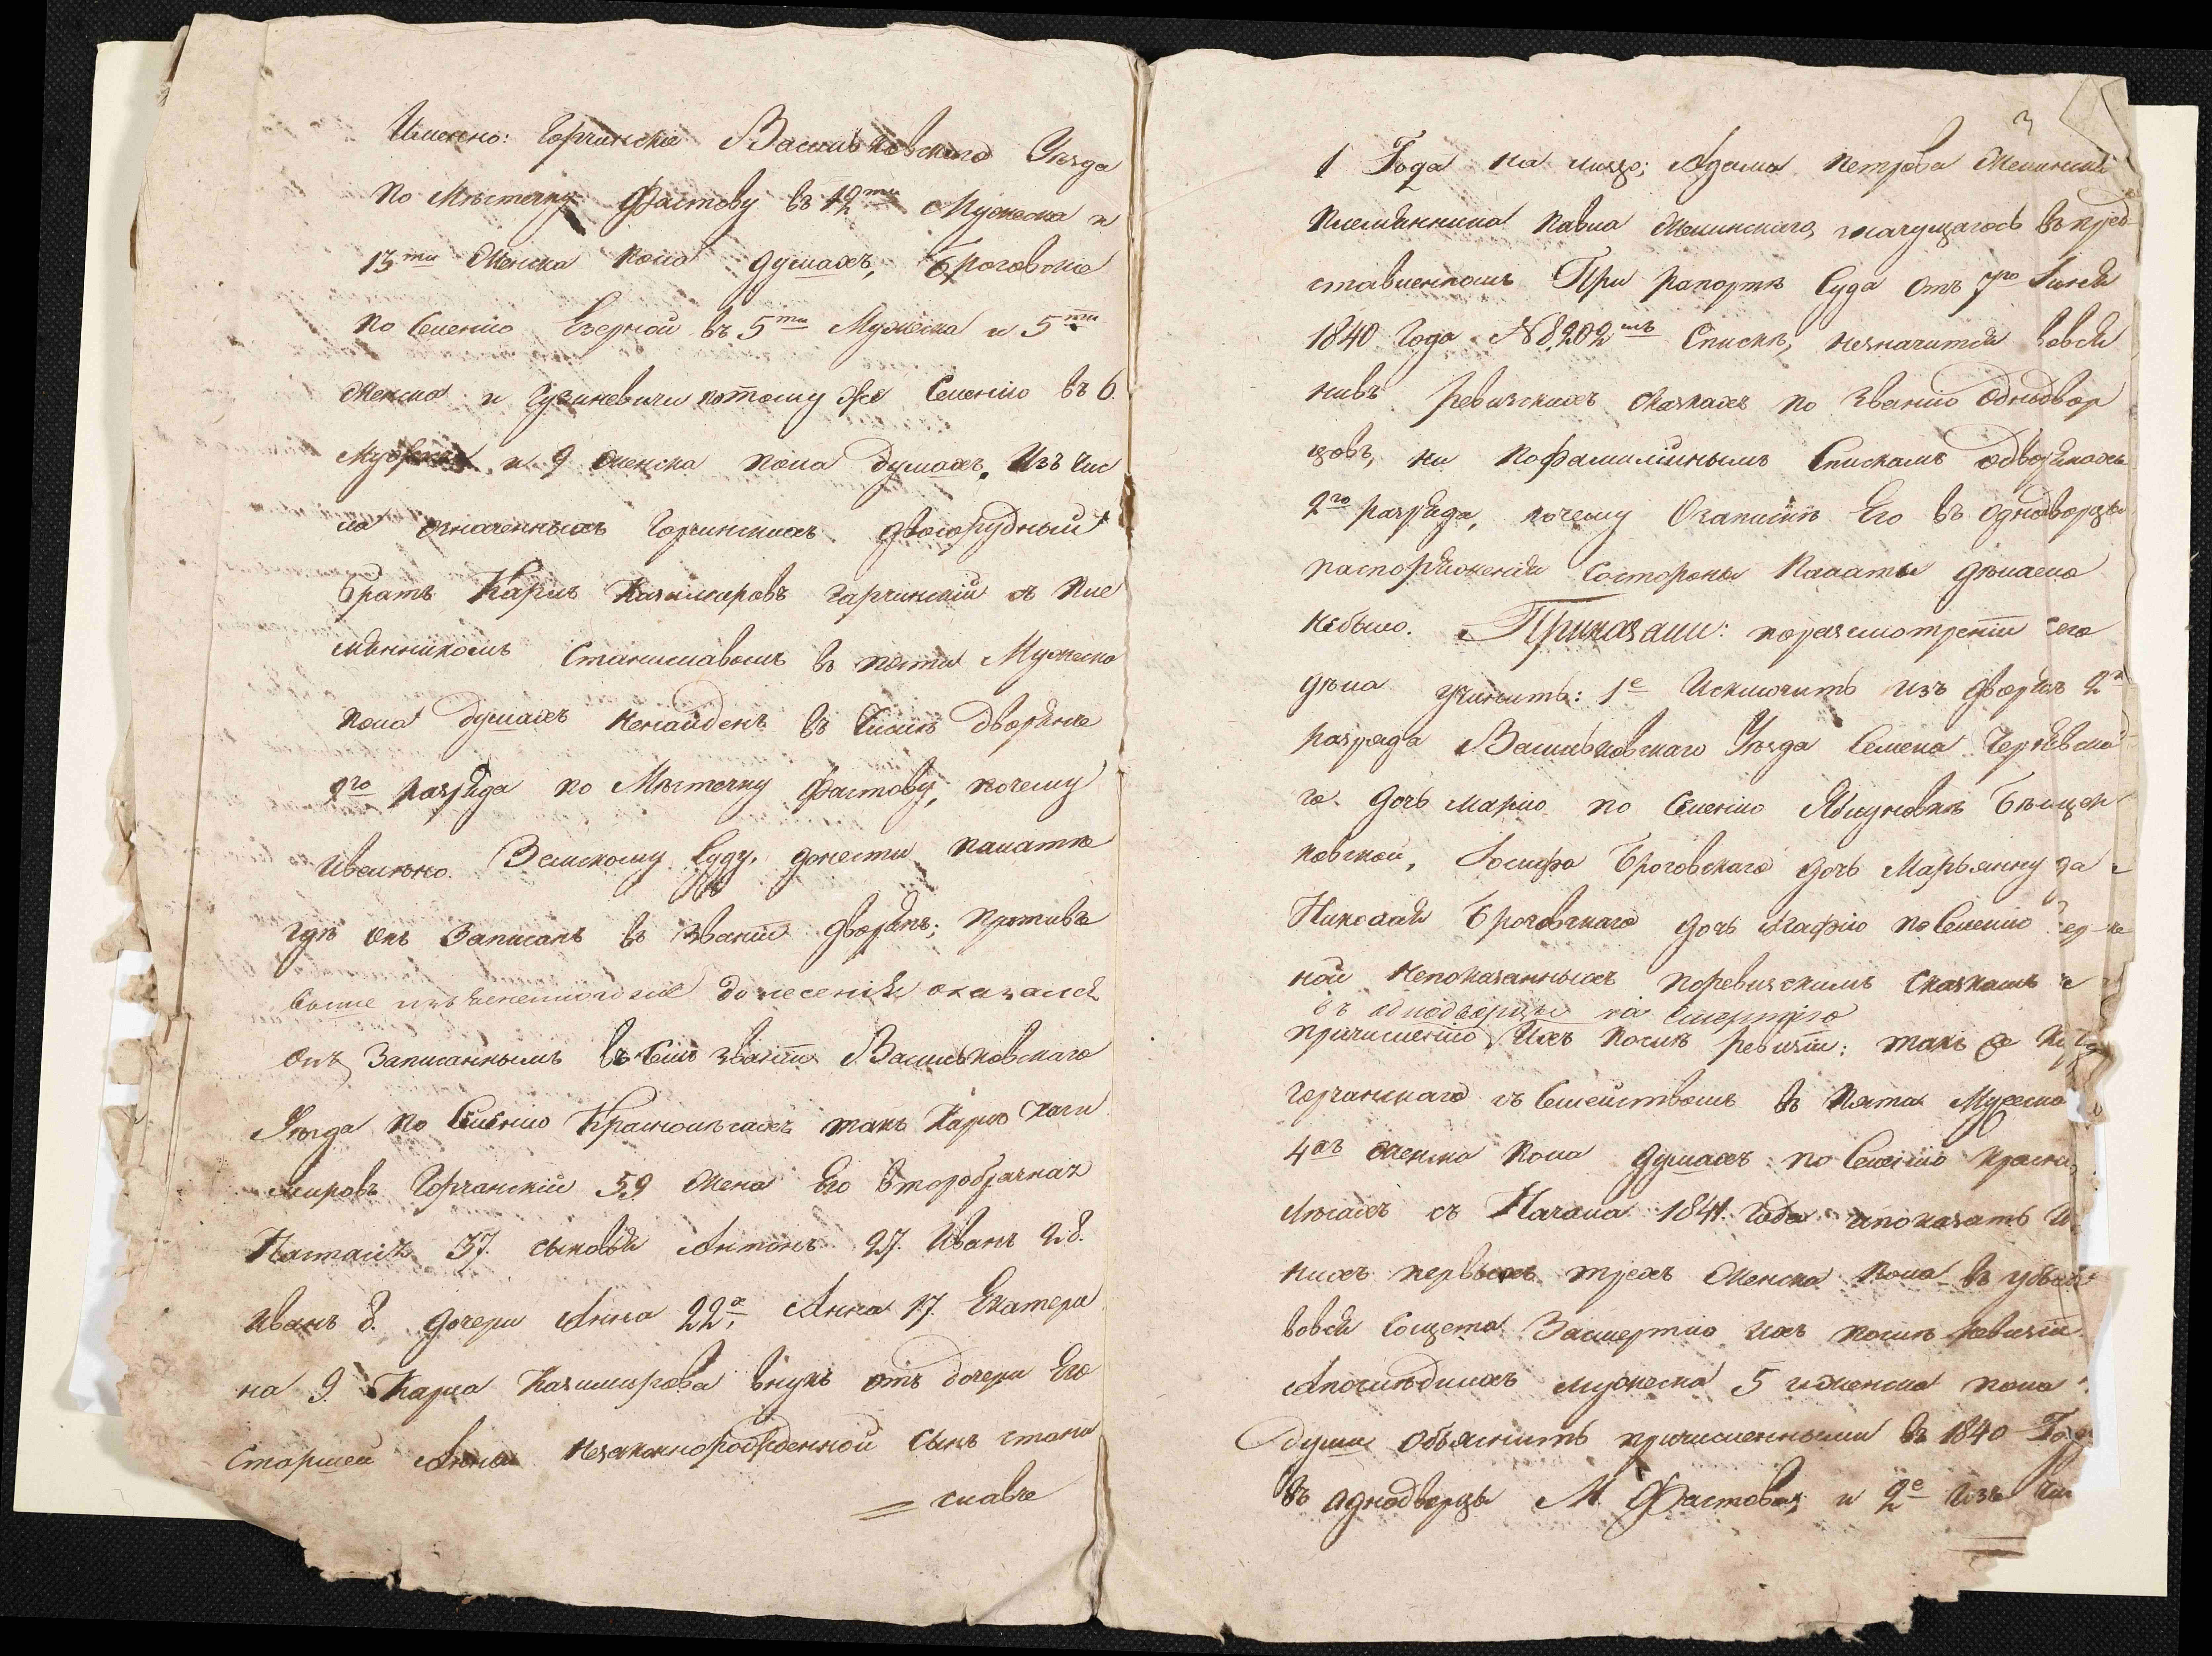 Именно: Горчинскіе Васильковскаго Уѣзда
по Мѣстечку Фастову въ 12ти Мужеска и
13ти Женска пола душахъ, Броговскіе
по Селенію Езерной въ 5ти Мужеска и 5ти
Женска и Гузикевичи потому же Селенію въ 6
Мужеска и 9 женска пола душахъ. Изъ чис
ла Горчинскихъ двоюрудный
братъ Карлъ Казимировъ Гарчинскій съ пле
мянникомъ Станиславомъ въ пяти Мужеска
пола душахъ ненайденъ въ дворяне
2го разряда по Мѣстечку Фастову, почему
ивелѣно Земскому Суду, донести палатѣ
гдѣ онъ Записанъ въ званіи дворянъ; противъ
выше донесенія оказался
онъ Записаннымъ въ семъ званіи Васильковскаго
Уѣзда по Селенію Краснолѣсахъ такъ Карло Кази
мировъ Горчанскій 59 Жена Его второбрачная
Настасія 37. сыновья Антонъ 27. Иванъ 28.
Иванъ 8. дочери Анна 22я, Анна 17. Екатери
на 9. Карла Казимирова внукъ отъ дочери Его
старшей Анны незаконнорожденной сынъ стани
славъ
3
1 Года на лицо; Адама Петрова
племянника Павла значущагось въ пред
ставленномъ При рапортѣ Суда отъ 7го
1840 Года №8202мъ Спискѣ, незначится вовсѣ
нивъ ревизскихъ сказкахъ по званію однодвор
цовъ, ни пофамилійнымъ Спискамъ одворянахъ
2го разряда, почему Озапискѣ Его въ однодворцы
распоряженія состороны Палаты дѣлаемо
небыло. Приказали: поразсмотреніи сего
дѣла учинить: 1е Исключить изъ дворянъ 2го
разряда Васильковскаго Уѣзда Семена
го дочь Марію по Селенію Яблуновкѣ
ковской, Іосифа Броговскаго дочь Марьянну
Николая Броговскаго дочь Агафію по Селенію
ной непоказанныхъ поревизскимъ сказкамъ
въ однодворцы за смертію
причисленію Ихъ послѣ ревизіи: такъ
Горчанскаго съ Семействомъ въ пяти Мужеска
4хъ женска пола душахъ по Селенію Красно
лѣсахъ съ Начала 1841. Года ипоказать
нихъ первыхъ трехъ Женска пола въ
вовсѣ Сощета Засмертію ихъ послѣ ревизіи.
Апослѣднихъ мужеска 5 иженска пола
души объяснить причисленными въ 1840 Году
въ аднодворцы М. Фастова, и 2е изъ